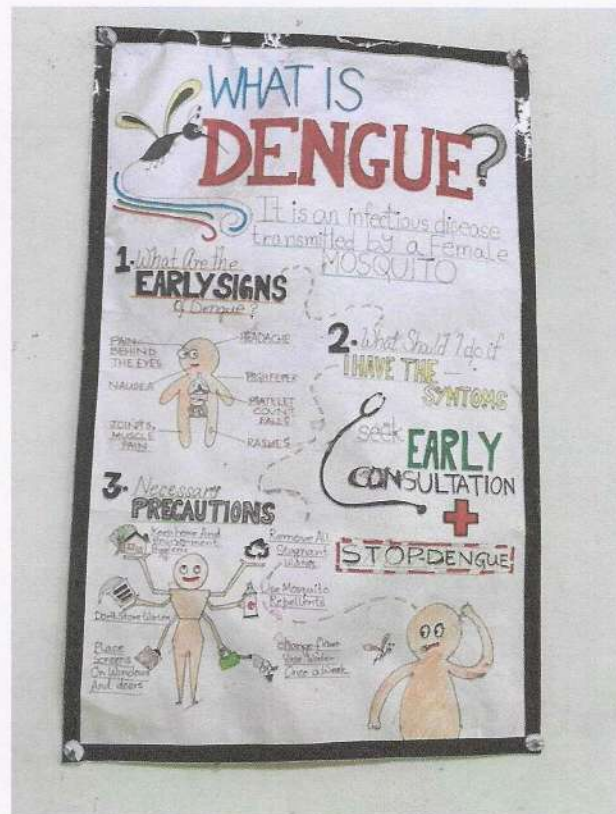 WHAT IS
DENGUE?
It is an infectious disease
transmitted by a Female
MOSQUITO
1. What Are the
EARLY SIGNS
of Dengue?
PAIN
BEHIND
THE EYES
HEADACHE
NAUSEA
HIGH FEVER
PLATELET
COUNT
FALLS
JOINTS,
MUSCLE
PAIN
RASHES
2. What Should I do if
I HAVE THE
SYNTOMS
seek EARLY
CONSULTATION
STOP DENGUE
3. Necessary
PRECAUTIONS
Keep home And
Environment
Hygiene
Remove All
Stagnant
Water
Don't Store Water
Use Mosquito
Repellents
Place
Screens
On Windows
And doors
Change flower
Vase Water
Once a Week